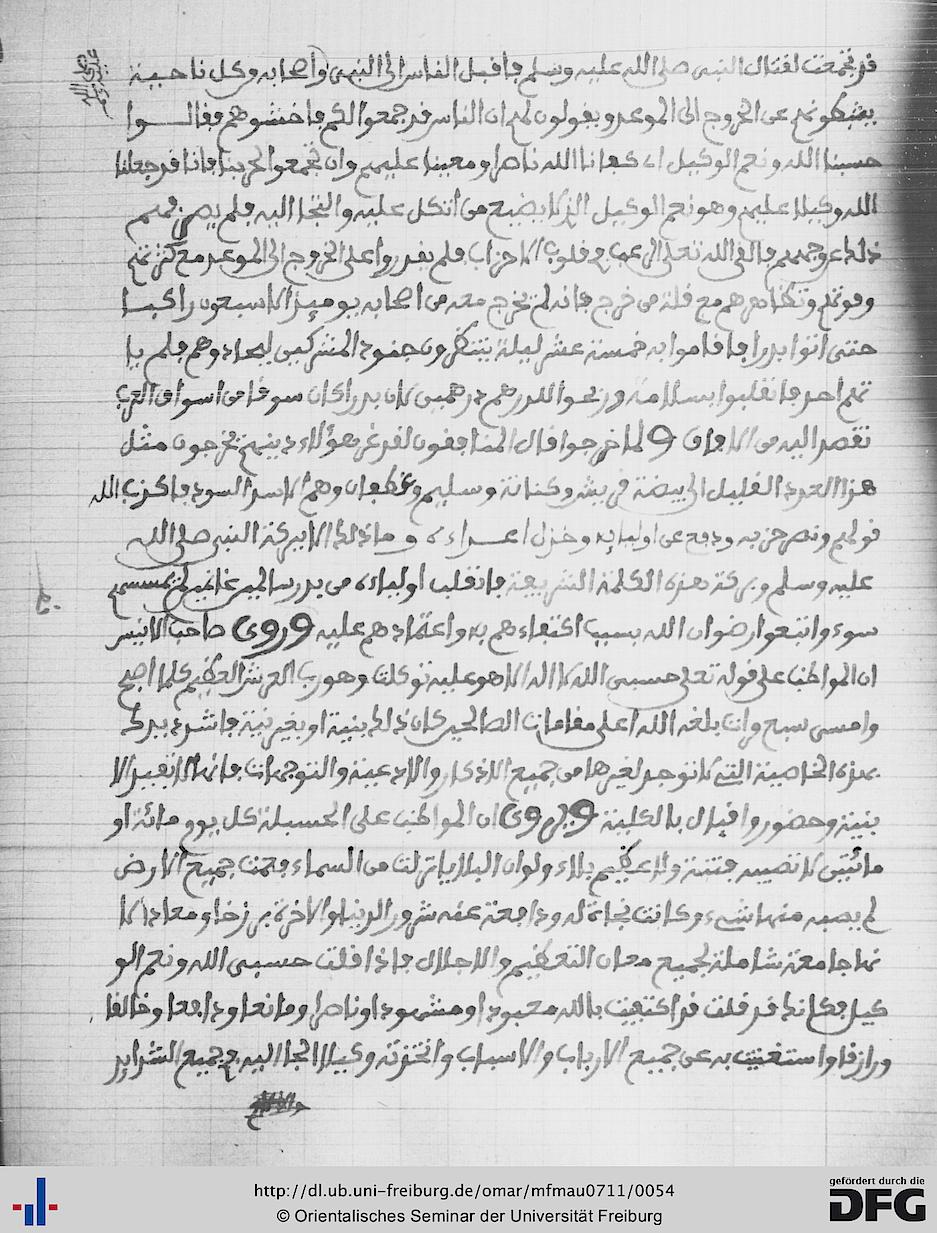 قد تجمعت لقتال النبي صلى الله عليه وسلم فاقبل الناس الى النبي واصحابه وكل ناحية
يشبطونهم عن الخروج الى الموعد ويقولون لهم ان الناس قد جمعوا لكم فاخشوهم فقالـــوا
حسبنا الله ونعم الوكيل اى كفانا الله ناصرا ومعينا عليهم وان تجمعوا لحربنا فانا قد جعلنا
الله وكيلا عليهم وهو نعم الوكيل الذى لا يضيع من اتكل عليه والتجا اليه فلم يصرفهم
ذلك عن وجههم فالقى الله تعلى الرعب فى قلوب الاحزاب فلم يقدروا على الخروج الى الموعد مع كثرتهم
وقوتهم وتظاهرهم مع قلة من خرج فانه لم يخرج معه من اصحابه يوميذ الا سبعون راكبـا
حتى اتوا بدرا فاقاموا به خمسة عشر ليلة ينتظرون جنود المشركين ليجادوهم فلم يا
تهم احد فانقلبوا بسلامة وربحوا للدرهم درهمين كان بدرا كان سوقا من اسواق العرب
تقصد اليه من الافاق ولما خرجوا قال المنافقون لقد غر هؤلاء دينهم يخرجون مثل
هذا العدد القليل الى بيضة قريش وكنانة وسليم وغطفان وهم الاسد السود فاكذب الله
قولهم ونصر حزبه ودفع عن اوليايه وخذل اعـــداءه وما ذلك الا ببركة النبي صلى الله
عليه وسلم وبركة هذه الكلمة الشريفة فانقلب اولياءه من بدر سالمين غانمين لم يمسسهم
سوء واتبعوا رضوان الله بسبب اكتفاءهم به واعتمادهم عليه وروى صاحب الانيس
ان المواظب على قوله تعلى حسبى الله لا اله الا هو عليه توكلت وهو رب العرش العظيم كلما اصبح
وامسى سبع مرات بلغه الله اعلى مقامات الصالحين كان ذلك بنية او بغير نية فاشدد يدك
بهذه الخاصية التى لا توجد لغيرها من جميع الاذكار والادعية والتوجهات فانها لا تفيد الا
بنية وحضور واقبال بالكلية ويروى ان المواظب على الحسبلة كل يوم مائة او
مائتين لا تصيبه فتنة ولا عظيم بلاء ولو ان البلايا نزلت من السماء فعمت جميع الارض
لم يصبه منها شىء وكانت نجاة له ودافعة عنه شرور الدنيا والاخرة برزخا ومعادا لا
نها جامعة شاملة لجميع معان التعظيم والاجلال فاذا قلت حسبى الله ونعم الو
كيل فكانك قد قلت قد اكتفيت بالله معبودا ومشهودا وناصرا ومانعا ودافعا وخالقا
ورازقا واستغنيت به عن جميع الارباب والاسباب واتخذته وكيلا الجا اليه فى جميع الشدايد
http://dl.ub.uni-freiburg.de/omar/mfmau0711/0054
© Orientalisches Seminar der Universität Freiburg
gefördert durch die
DFG